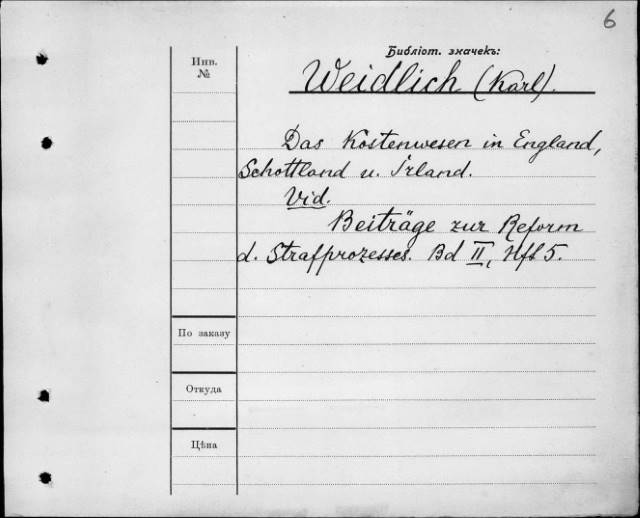 6
Библіот. значекъ:
Инв.
№
Weidlich (Karl).
Das Kostenwesen in England,
Schottland u. Irland.
Vid.
Beiträge zur Reform
d. Strafprozesses. Bd II, Hft 5.
По заказу
Откуда
Цѣна